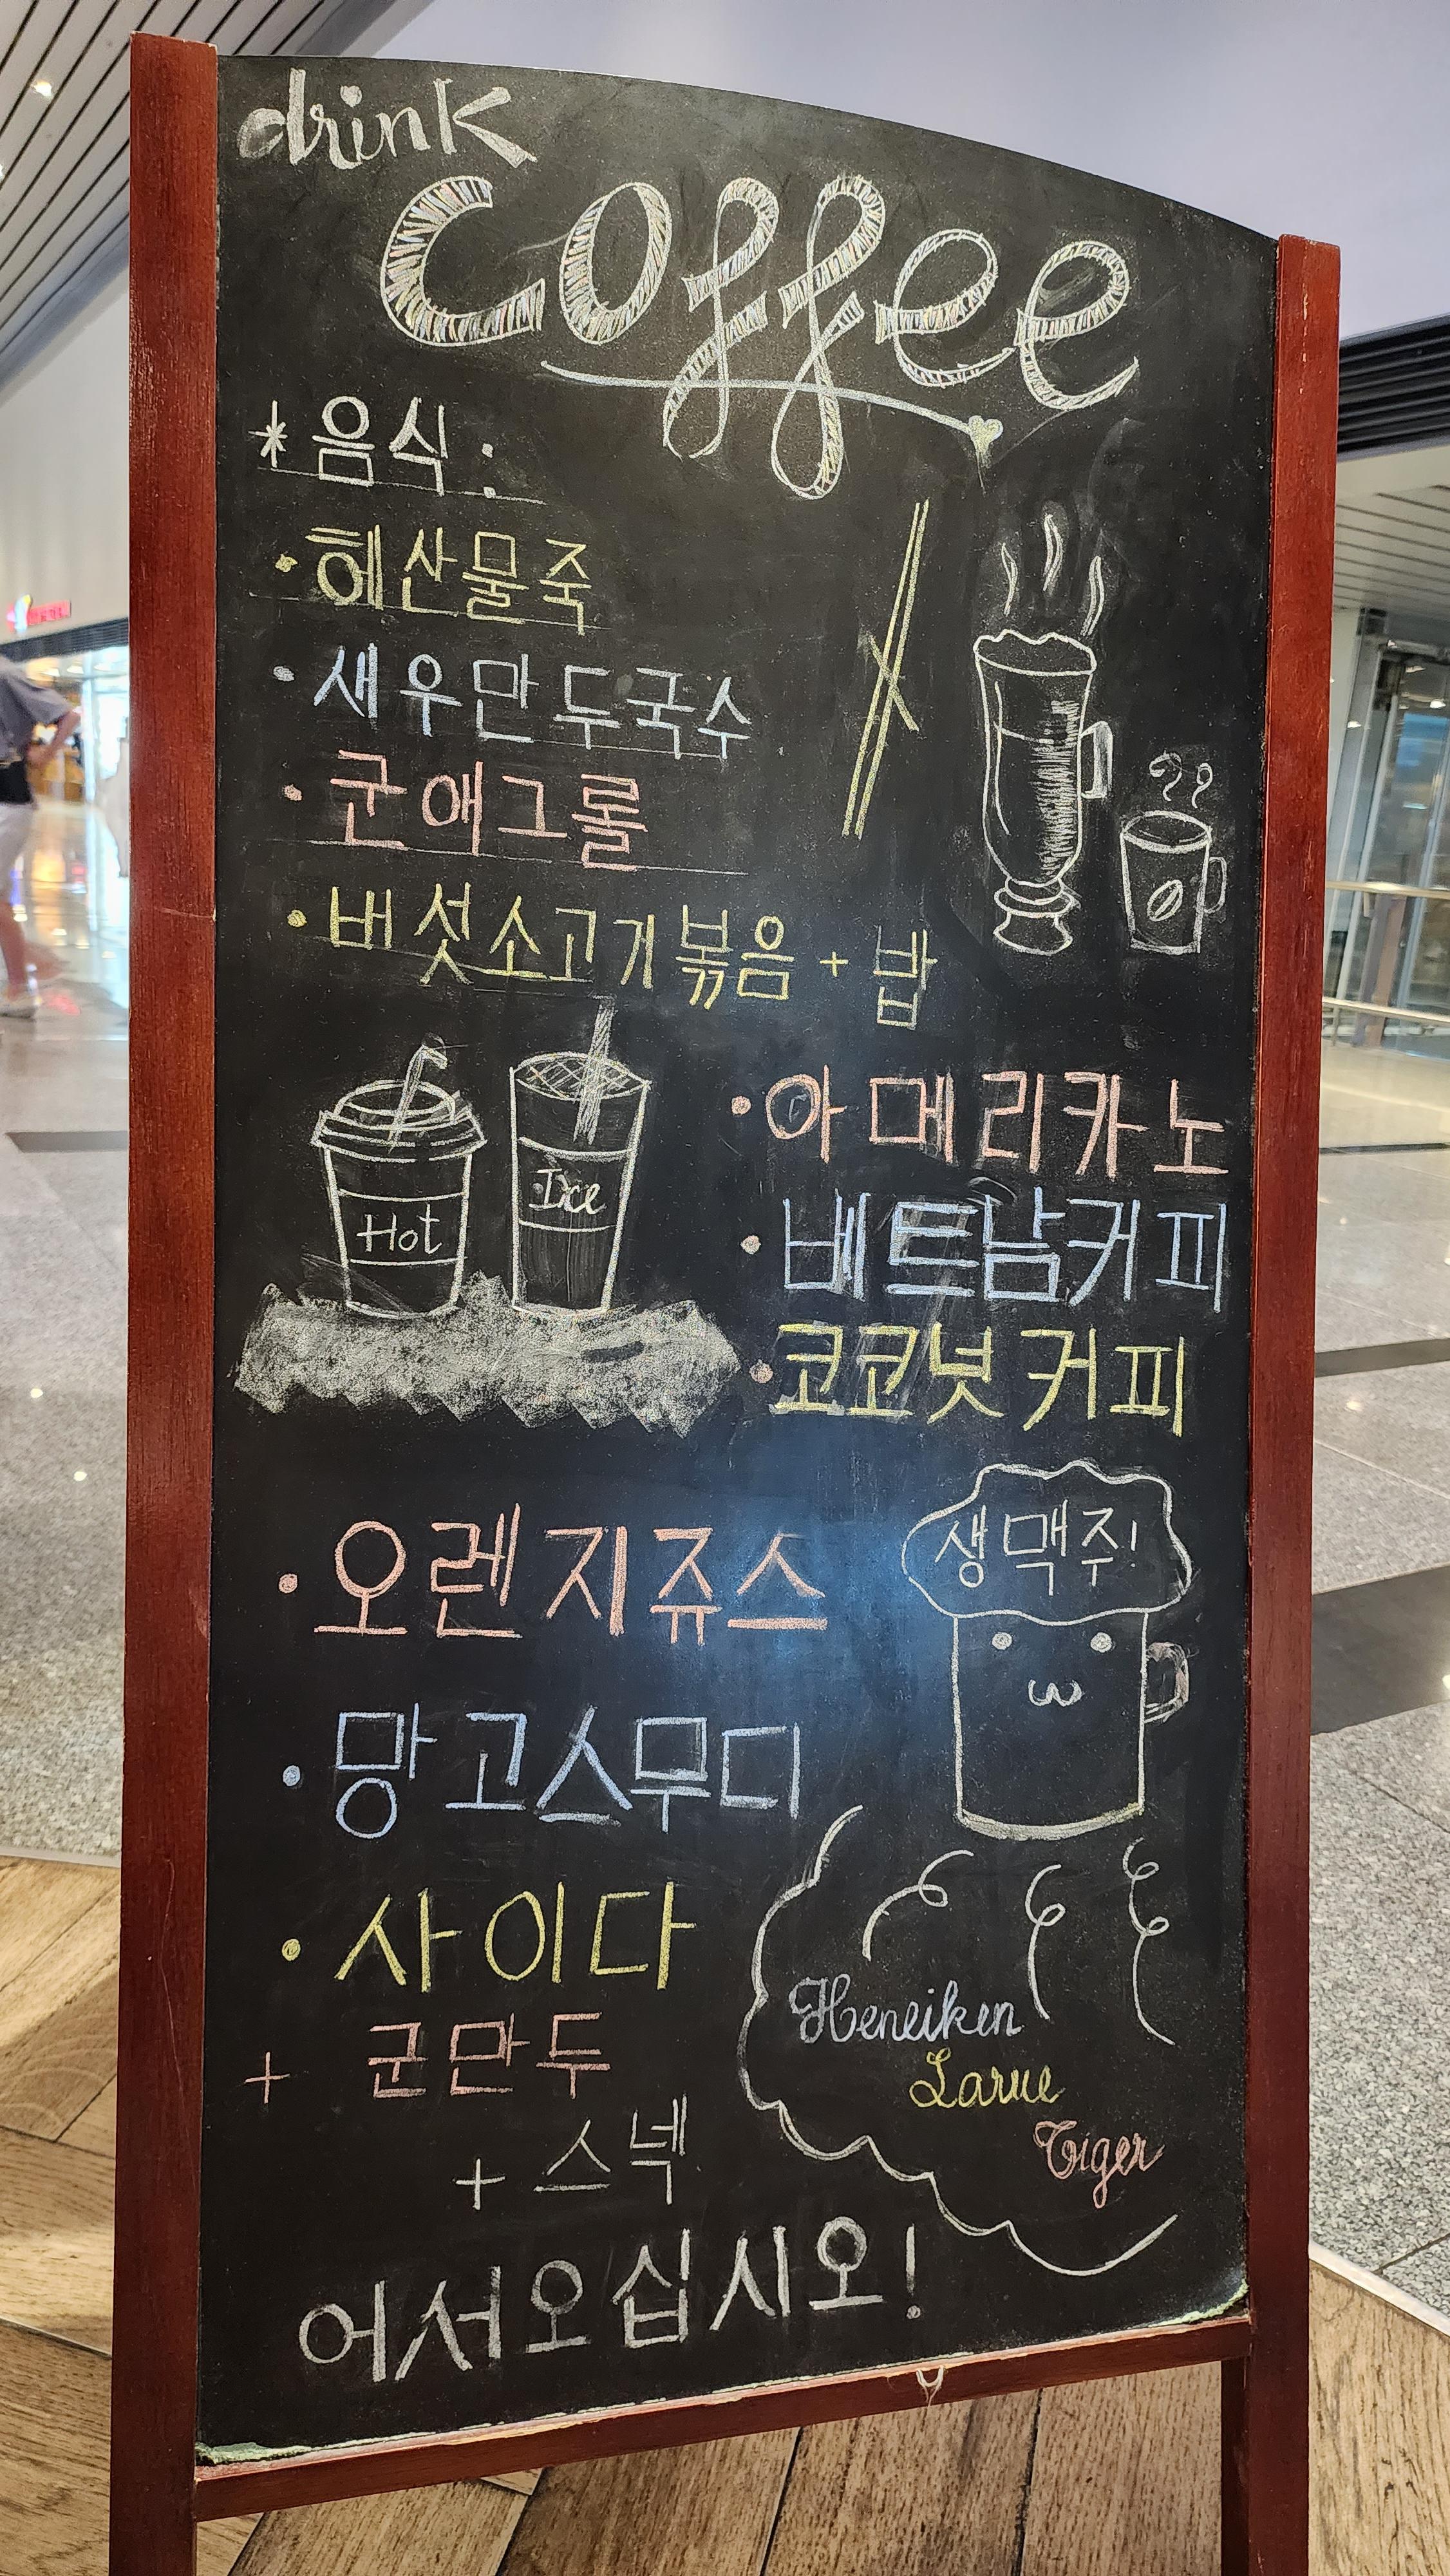 drink
coffee
* 음식 :
• 헤산물죽
• 새우만두국수
• 군애그롤
• 버섯소고기볶음 + 밥
Hot
Ice
• 아메리카노
• 베트남커피
• 코코넛커피
• 오렌지쥬스
생맥주!
• 망고스무디
• 사이다
+ 군만두
+ 스넥
Heneiken
Larue
Tiger
어서오십시오!